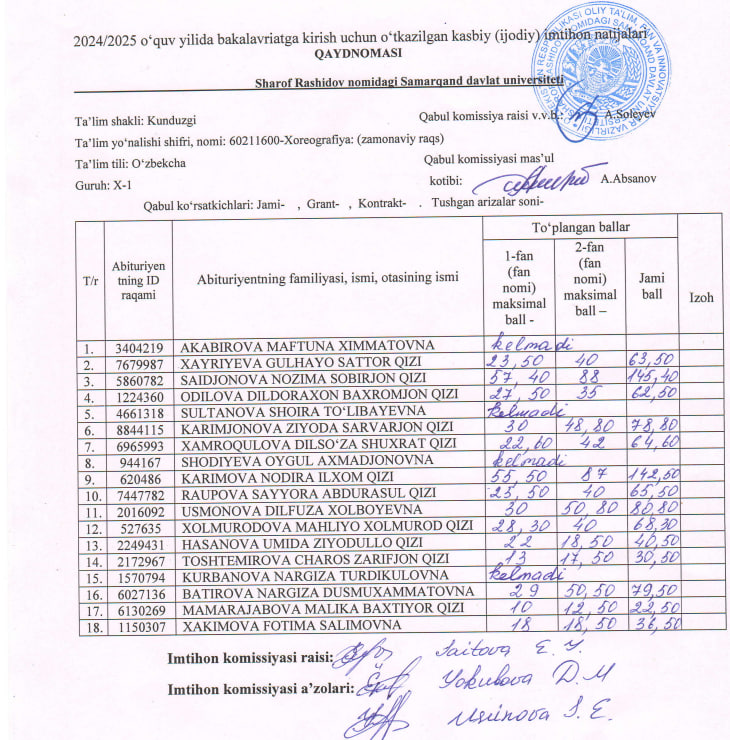 2024/2025 o‘quv yilida bakalavriatga kirish uchun o‘tkazilgan kasbiy (ijodiy) imtihon natijalari
QAYDNOMASI
Sharof Rashidov nomidagi Samarqand davlat universiteti
Ta’lim shakli: Kunduzgi Qabul komissiya raisi v.v.b.: A.Soleyev
Ta’lim yo‘nalishi shifri, nomi: 60211600-Xoreografiya: (zamonaviy raqs)
Ta’lim tili: O‘zbekcha Qabul komissiyasi mas’ul
Guruh: X-1 kotibi: A.Absanov
Qabul ko‘rsatkichlari: Jami- , Grant- , Kontrakt- . Tushgan arizalar soni-
T/r Abituriyentning ID raqami Abituriyentning familiyasi, ismi, otasining ismi To‘plangan ballar Izoh
1-fan (fan nomi) maksimal ball - 2-fan (fan nomi) maksimal ball – Jami ball
1. 3404219 AKABIROVA MAFTUNA XIMMATOVNA kelmadi
2. 7679987 XAYRIYEVA GULHAYO SATTOR QIZI 23,50 40 63,50
3. 5860782 SAIDJONOVA NOZIMA SOBIRJON QIZI 57,40 88 145,40
4. 1224360 ODILOVA DILDORAXON BAXROMJON QIZI 27,50 35 62,50
5. 4661318 SULTANOVA SHOIRA TO‘LIBAYEVNA kelmadi
6. 8844115 KARIMJONOVA ZIYODA SARVARJON QIZI 30 48,80 78,80
7. 6965993 XAMROQULOVA DILSO‘ZA SHUXRAT QIZI 22,60 42 64,60
8. 944167 SHODIYEVA OYGUL AXMADJONOVNA kelmadi
9. 620486 KARIMOVA NODIRA ILXOM QIZI 55,50 87 142,50
10. 7447782 RAUPOVA SAYYORA ABDURASUL QIZI 25,50 40 65,50
11. 2016092 USMONOVA DILFUZA XOLBOYEVNA 30 50,80 80,80
12. 527635 XOLMURODOVA MAHLIYO XOLMUROD QIZI 28,30 40 68,30
13. 2249431 HASANOVA UMIDA ZIYODULLO QIZI 22 18,50 40,50
14. 2172967 TOSHTEMIROVA CHAROS ZARIFJON QIZI 13 17,50 30,50
15. 1570794 KURBANOVA NARGIZA TURDIKULOVNA kelmadi
16. 6027136 BATIROVA NARGIZA DUSMUXAMMATOVNA 29 50,50 79,50
17. 6130269 MAMARAJABOVA MALIKA BAXTIYOR QIZI 10 12,50 22,50
18. 1150307 XAKIMOVA FOTIMA SALIMOVNA 18 18,50 36,50
Imtihon komissiyasi raisi: Saitova E.
Imtihon komissiyasi a’zolari: Yokubova D.M
Usmonova S.E.